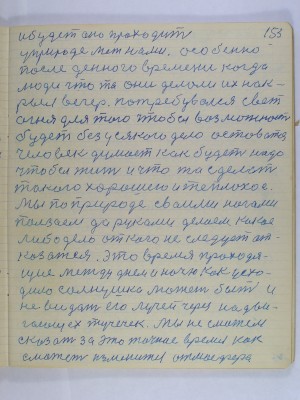 153
и будет оно проходить
у природе меж нами, особенно
после денного времени когда
люди что то они делали их нак-
рыл вечер. потребувался свет
огня для того чтобы возможност
будет без усякого дело оставатся
человек думает как будет надо
чтобы жит и что то сделат
такого хорошого и теплохое.
Мы по природе своими ногами
ползаем да руками делаем какое
либо дело от кого не следует от-
казатся. Это время проходя-
щие между днем и ночю как ухо-
дило солнушко может быт и
не видат его лучей через надви-
гающех тучечек. Мы не сможем
сказат за это точное время как
сможет изменится отмосфера